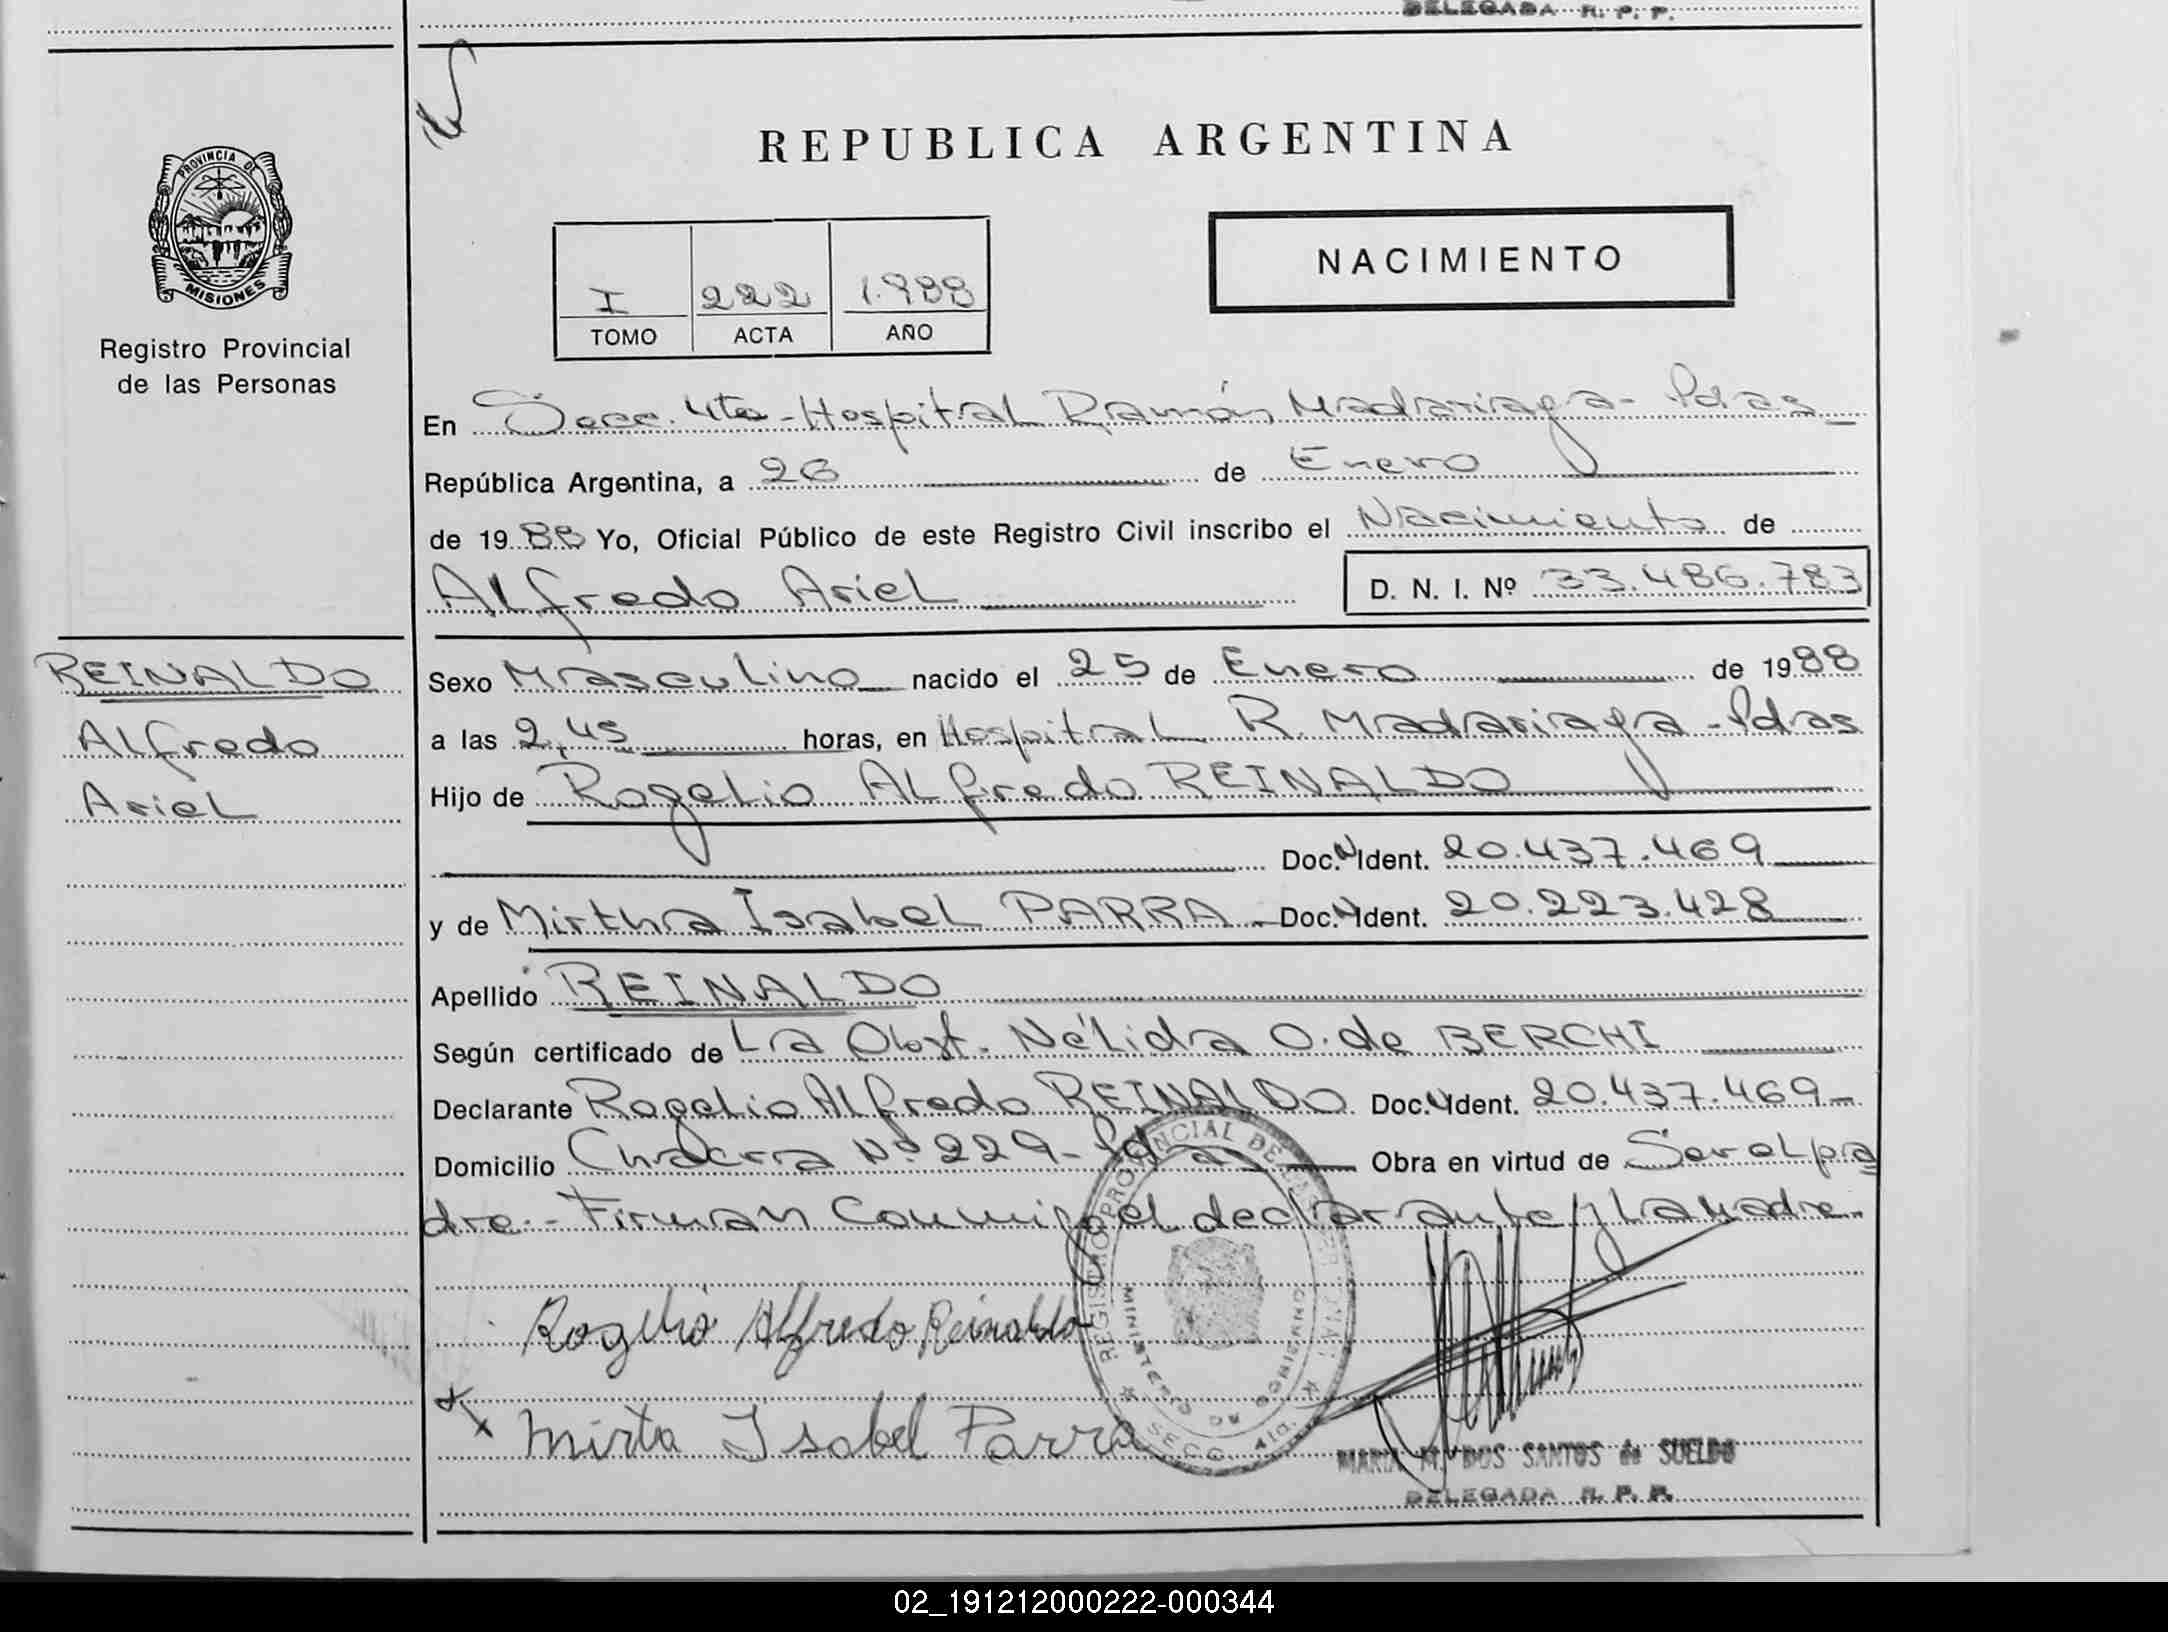 DELEGADA R. P. P.
REPUBLICA ARGENTINA
PROVINCIA DE
MISIONES
Registro Provincial
de las Personas
NACIMIENTO
I 222 1.988
TOMO ACTA AÑO
En Secc. 4ta - Hospital Ramón Madariaga - Pdas
República Argentina, a 26 de Enero
de 1988 Yo, Oficial Público de este Registro Civil inscribo el Nacimiento de
Alfredo Ariel D. N. I. Nº 33.486.783
REINALDO
Alfredo
Ariel
Sexo Masculino nacido el 25 de Enero de 1988
a las 2,45 horas, en Hospital R. Madariaga - Pdas
Hijo de Rogelio Alfredo REINALDO
Doc. N Ident. 20.437.469
y de Mirtha Isabel PARRA - Doc. N Ident. 20.223.428
Apellido REINALDO
Según certificado de La Obst. Nélida O. de BERCHI
Declarante Rogelio Alfredo REINALDO Doc. N Ident. 20.437.469-
Domicilio Chacra Nº 229 - Pdas Obra en virtud de Ser el pa
dre.- Firman conmigo el declarante y la Madre.
Rogelio Alfredo Reinaldo
Mirta Isabel Parra
REGISTRO PROVINCIAL DE LAS PERSONAS
MINISTERIO DE GOBIERNO
SECC. 4ta.
MARIA M. DOS SANTOS de SUELDO
DELEGADA R. P. P.
02_191212000222-000344